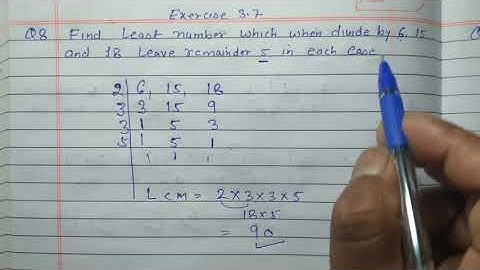 Exercise 3.7
Q8 Find Least number which when divide by 6, 15
and 18 leave remainder 5 in each case.
2 6, 15, 18
3 3 15 9
3 1 5 3
5 1 5 1
1 1 1
Lcm = 2×3×3×5
18×5
= 90